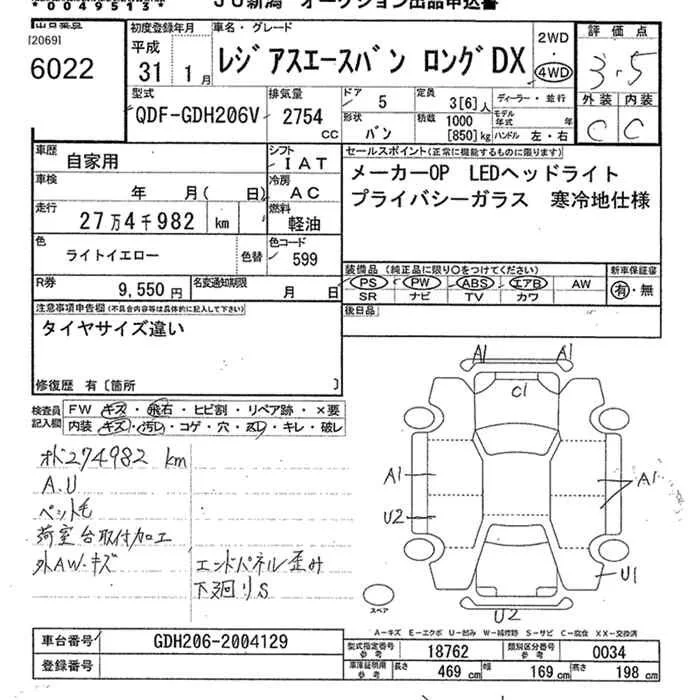 *00405134*
JU新潟 オークション出品申込書
[2069]
6022
初度登録年月
平成
31 1 月
車名・グレード
レジアスエースバン ロングDX
2WD
4WD
評価点
3.5
外装 内装
C C
型式
QDF-GDH206V
排気量
2754 CC
ドア
5
形状
バン
定員
3[6]人
積載 1000
[850] kg
ディーラー・並行
モデル年式 年
ハンドル 左・右
車歴 自家用
シフト
IAT
車検 年 月( 日)
冷房
AC
走行 27万4千982 km
燃料
軽油
色 ライトイエロー 色替
色コード
599
R券 9,550 円
名変通知期限 月 日
セールスポイント(正常に機能するものに限ります)
メーカーOP LEDヘッドライト
プライバシーガラス 寒冷地仕様
装備品(純正品に限り○をつけてください)
PS PW ABS エアB AW
SR ナビ TV カワ
新車保証書
有・無
後日品
注意事項申告欄(不具合内容等は具体的に記入して下さい)
タイヤサイズ違い
修復歴 有〔箇所 〕
検査員記入欄
FW キズ・飛石・ヒビ割・リペア跡・×要
内装 キズ・汚レ・コゲ・穴・スレ・キレ・破レ
メーター274982 km
A.U
ペット毛
荷室台取付加工
外AW・キズ
エンドパネル歪み
下廻りS
A1 A1
C1
A1
U2
A1
U1
U2
スペア
A-キズ E-エクボ U-凹み W-補修跡 S-サビ C-腐食 XX-交換済
車台番号 GDH206-2004129
登録番号
型式指定番号 参考 18762
類別区分番号 参考 0034
車庫証明用 参考 長さ 469 cm 幅 169 cm 高さ 198 cm